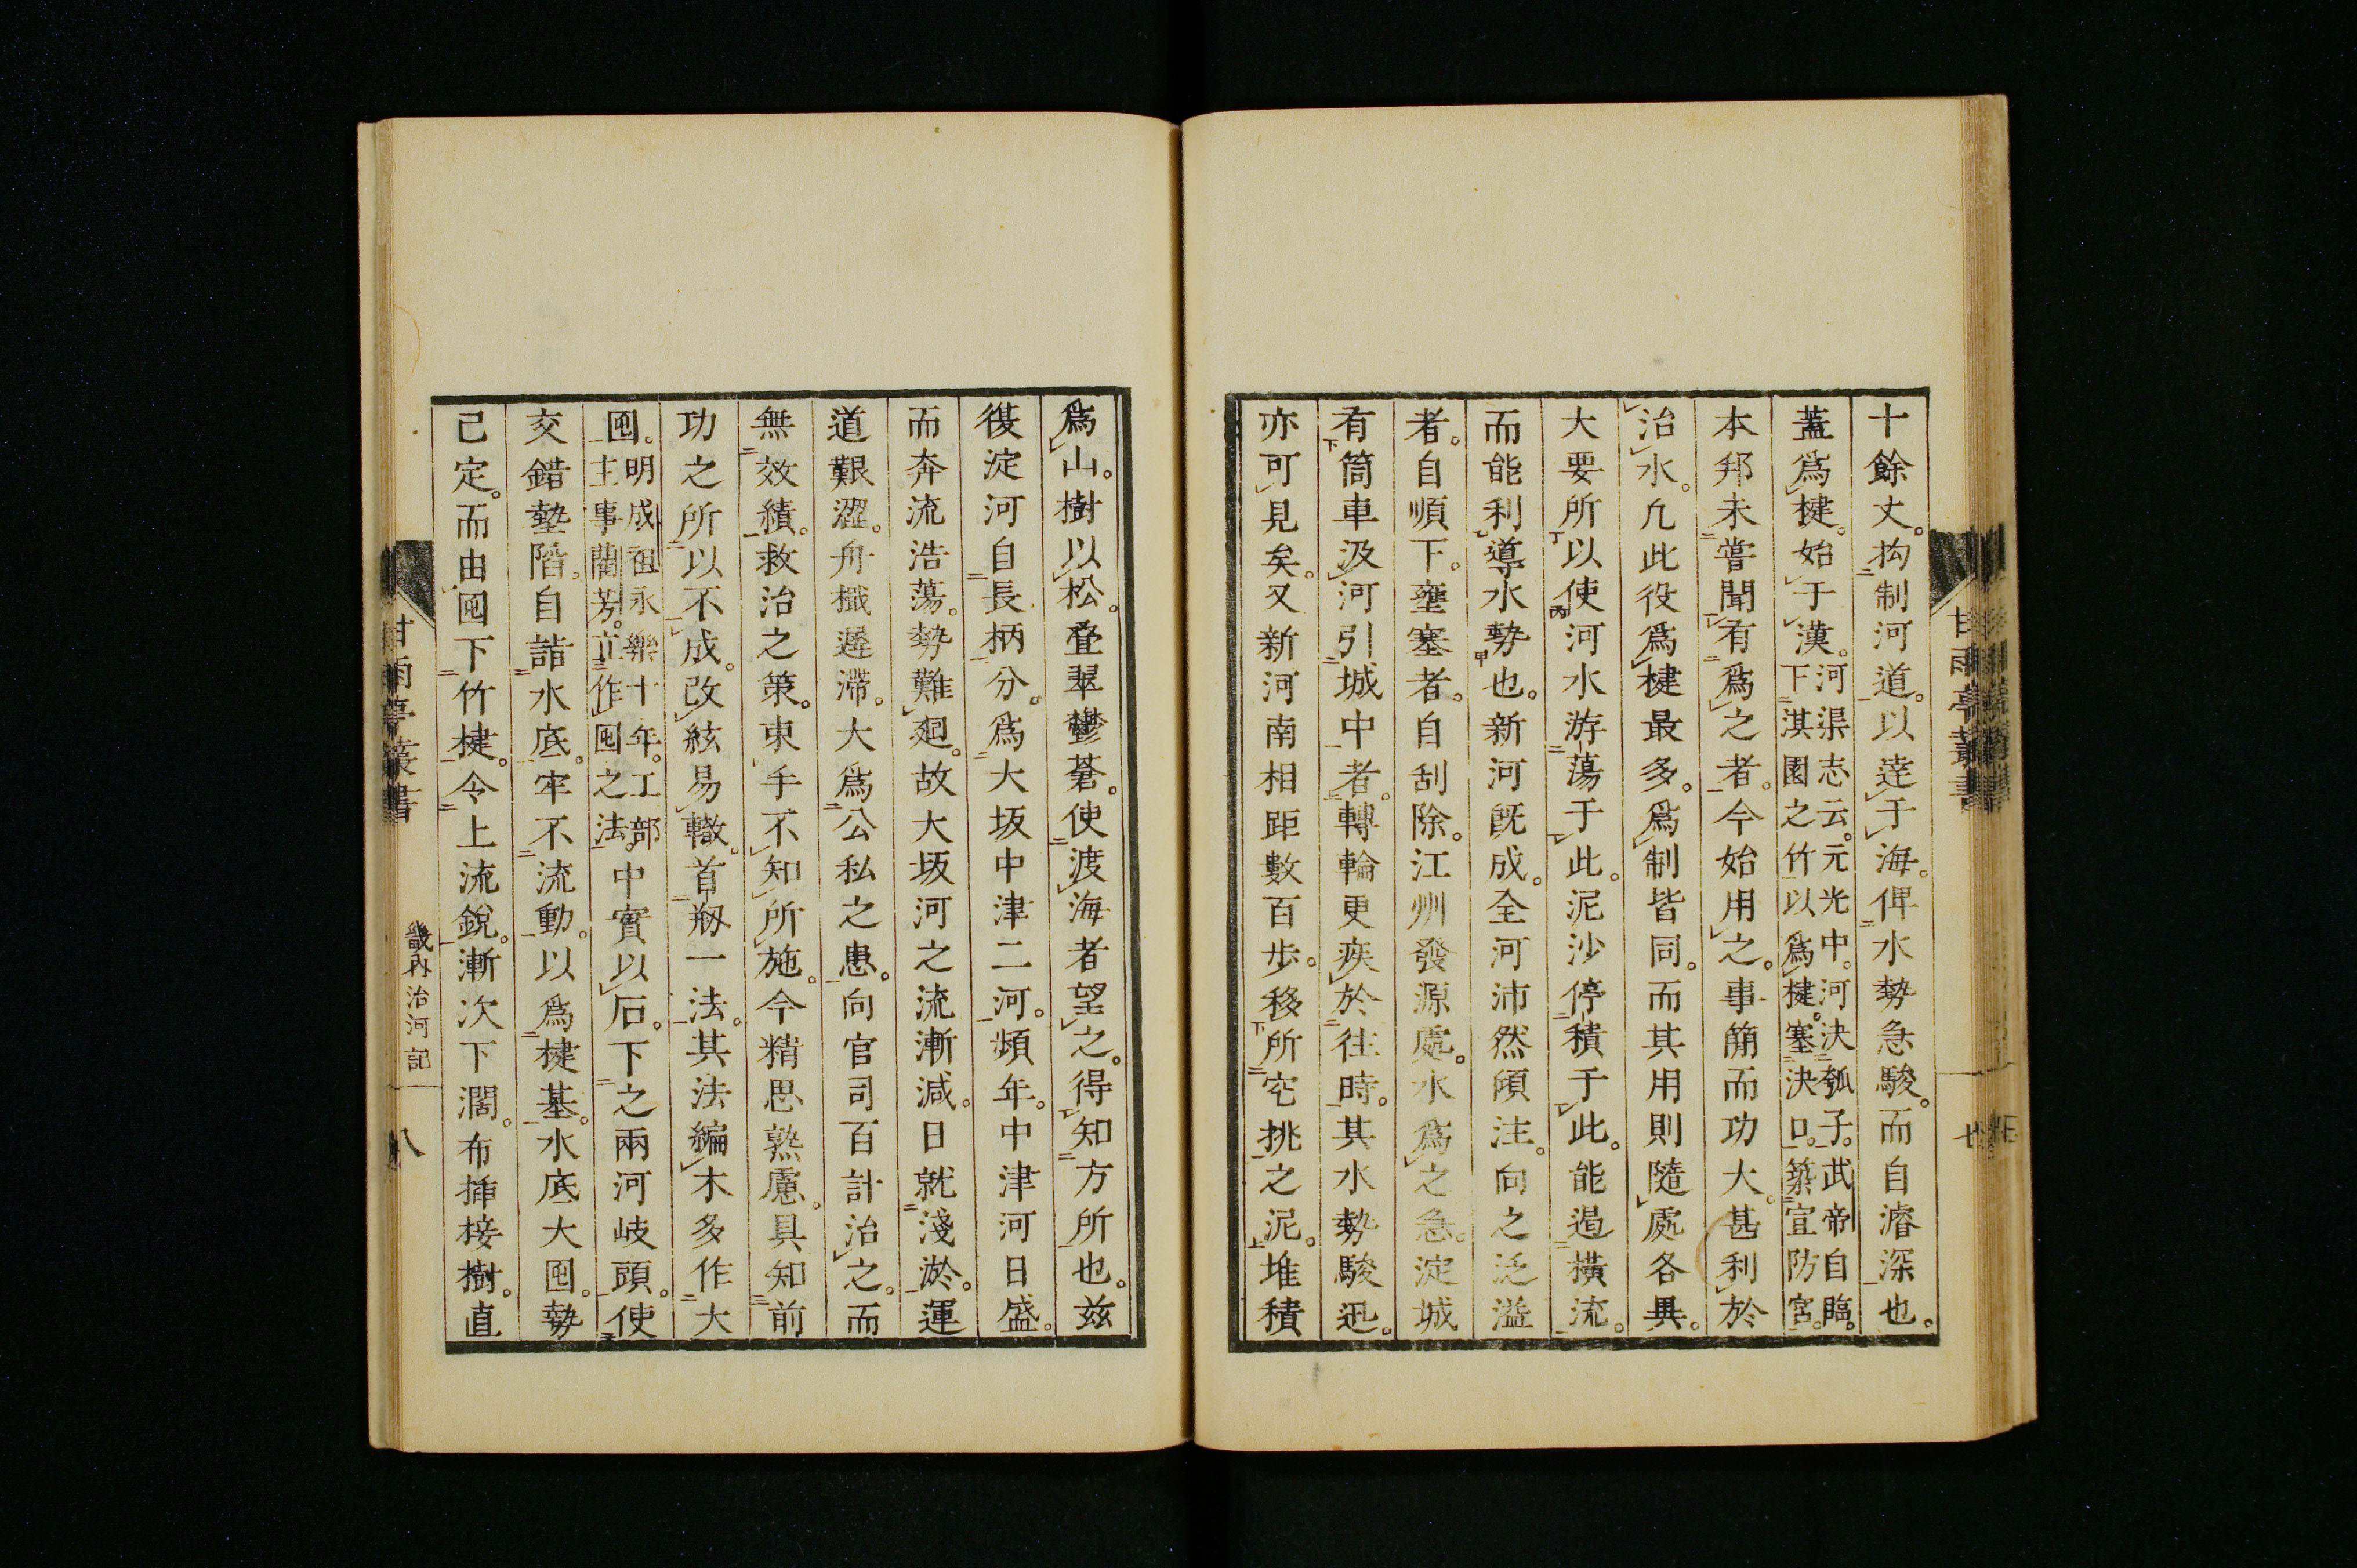 十餘丈。拘制河道。以達于海。俾水勢急駿。而自濬深也。
蓋爲楗。始于漢。河渠志云。元光中。河決瓠子。武帝自臨。下淇園之竹以爲楗。塞決口。築宣防宮。
本邦未嘗聞有爲之者。今始用之。事簡而功大。甚利於
治水。凢此役爲楗最多。爲制皆同。而其用則隨處各異。
大要所以使河水游蕩于此。泥沙停積于此。能遏橫流。
而能利導水勢也。新河既成。全河沛然傾注。向之泛溢
者。自順下。壅塞者。自刮除。江州發源處。水爲之急。淀城
有筒車汲河引城中者。轉輪更疾於往時。其水勢駿迅。
亦可見矣。又新河南相距數百步。移所穵挑之泥。堆積
甘雨亭叢書
七
爲山。樹以松。疊翠鬱蒼。使渡海者望之。得知方所也。茲
復淀河自長柄分。爲大坂中津二河。頻年。中津河日盛。
而奔流浩蕩。勢難廻。故大坂河之流漸減。日就淺淤。運
道艱澀。舟檝遲滯。大爲公私之患。向官司百計治之。而
無效績。救治之策。束手不知所施。今精思熟慮。具知前
功之所以不成。改絃易轍。首剏一法。其法編木多作大
囤。明成祖永樂十年。工部主事藺芳。立作囤之法。中實以石。下之兩河岐頭。使
交錯墊陷。自詣水底。牢不流動。以爲楗基。水底大囤。勢
已定。而由囤下竹楗。令上流銳。漸次下濶。布揷接樹。直
甘雨亭叢書
畿內治河記
八